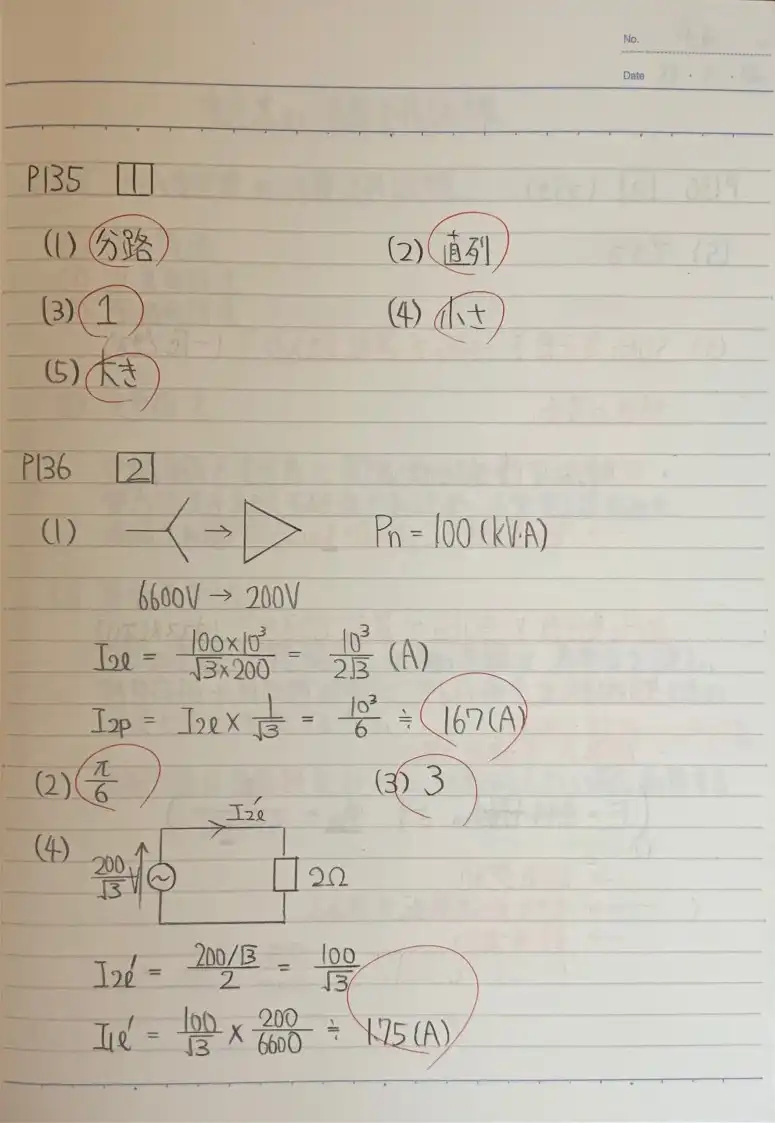 No.
Date
P135 1
(1) 分路 (2) 直列
(3) 1 (4) 小さ
(5) 大き
P136 2
(1) → Pn = 100 (kV·A)
6600V → 200V
I2l = 100×10³/√3×200 = 10³/2√3 (A)
I2p = I2l × 1/√3 = 10³/6 ≒ 167(A)
(2) π/6 (3) 3
(4) I2l′
200/√3 V ~ 2Ω
I2l′ = 200/√3/2 = 100/√3
I1l′ = 100/√3 × 200/6600 ≒ 1.75(A)